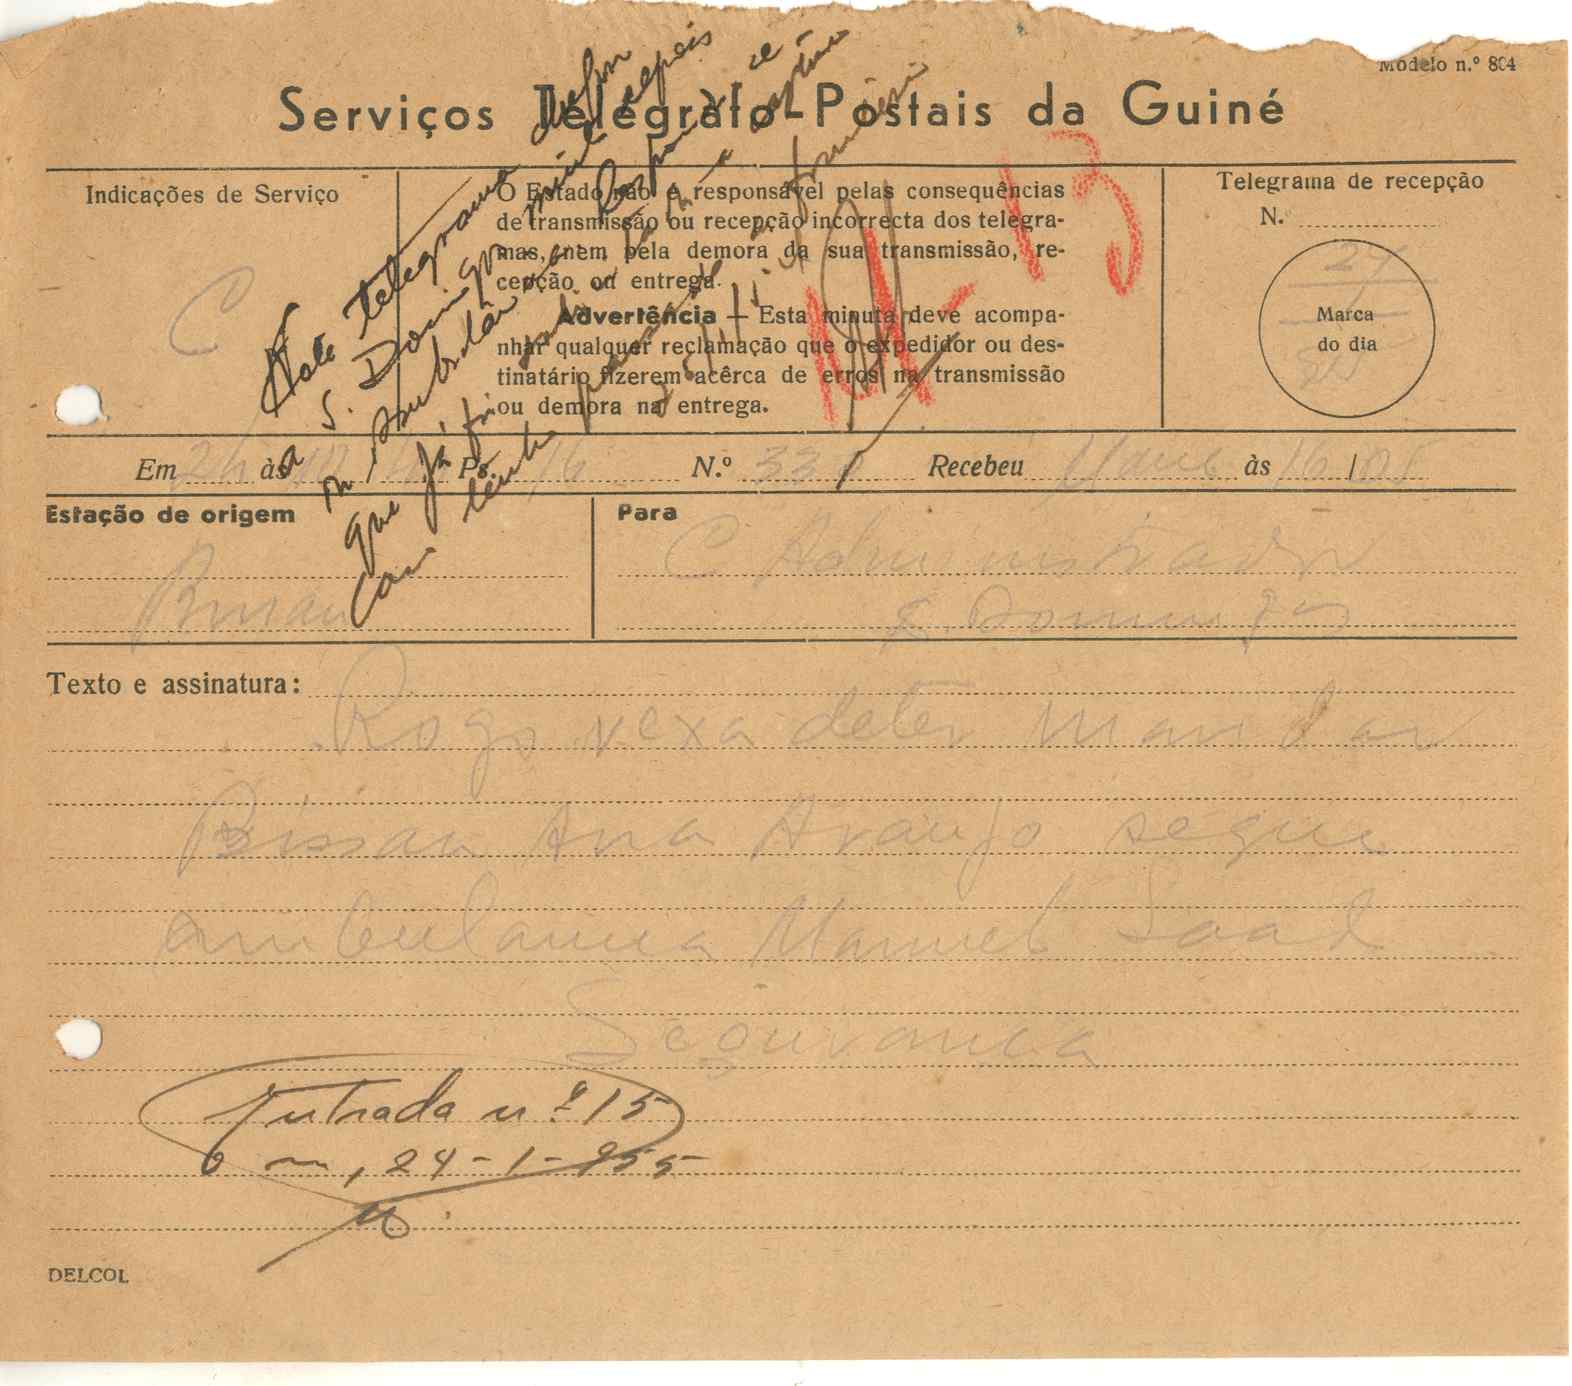 Modelo n.º 804
Serviços Telégrafo-Postais da Guiné
Indicações de Serviço
C
O Estado não é responsável pelas consequências
de transmissão ou recepção incorrecta dos telegra-
mas, nem pela demora da sua transmissão, re-
cepção ou entrega.
Advertência — Esta minuta deve acompa-
nhar qualquer reclamação que o expedidor ou des-
tinatário fizerem acêrca de erros na transmissão
ou demora na entrega.
Telegrama de recepção
N.
24
1
Marca
do dia
Este telegrama
a S. Domingos
que já foi
13
Em 24 às Ps. 16 N.º 330 Recebeu Manuel às 16/05
Estação de origem
Bissau
Para
C Administrador
S. Domingos
Texto e assinatura:
Rogo vexa deter mandar
Bissau Ana Araujo segue
ambulancia Manuel Saad
Segurança
Entrada n.º 15
em, 24-1-955
DELCOL